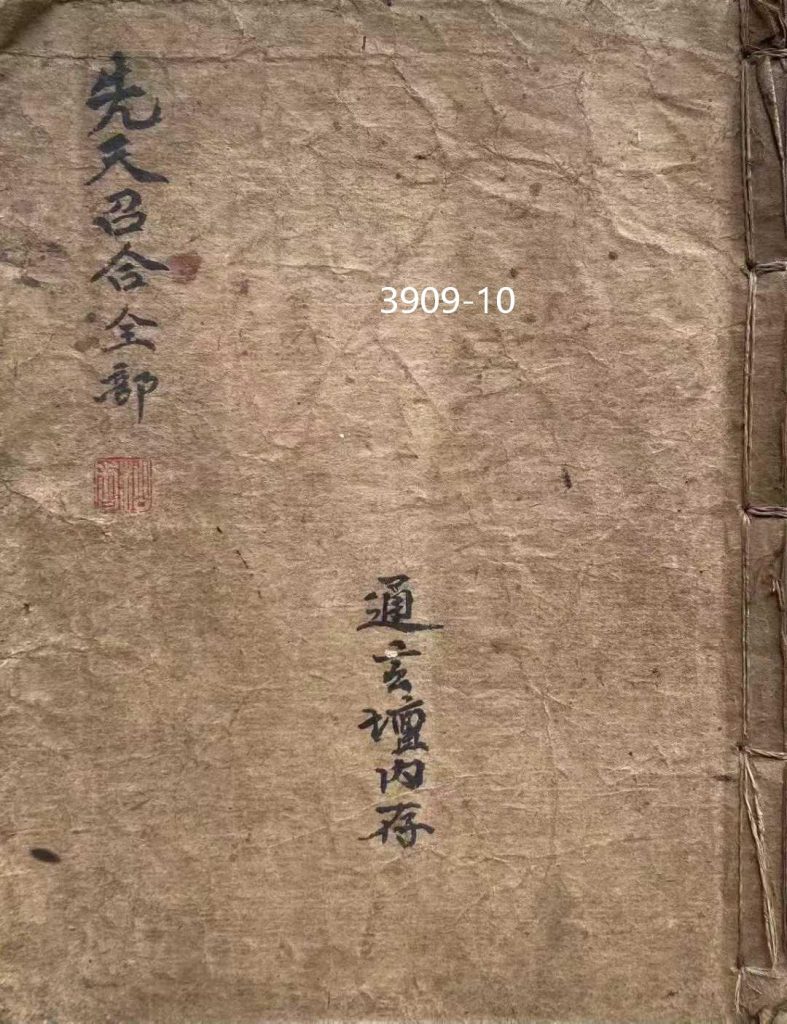 先天召合全部
3909-10
通玄壇内存